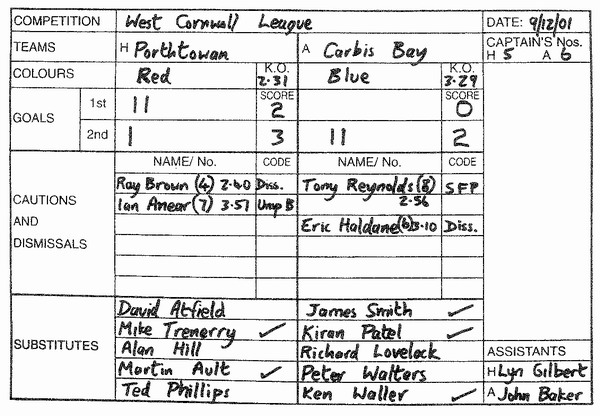 COMPETITION West Cornwall League DATE: 9/12/01
TEAMS H Porthtowan A Carbis Bay CAPTAIN'S Nos. H 5 A 6
COLOURS Red K.O. 2.31 Blue K.O. 3.29
GOALS 1st 11 SCORE 2 SCORE 0
2nd 1 3 11 2
NAME/ No. CODE NAME/ No. CODE
CAUTIONS AND DISMISSALS
Ray Brown (4) 2.40 Diss. Tony Reynolds (8) 2.56 SFP
Ian Anear (7) 3.51 Unsp B
Eric Haldane (6) 3.10 Diss.
SUBSTITUTES
David Atfield James Smith ✓
Mike Trenerry ✓ Kiran Patel ✓
Alan Hill Richard Lovelock ASSISTANTS
Martin Ault ✓ Peter Walters H Lyn Gilbert
Ted Phillips Ken Waller ✓ A John Baker